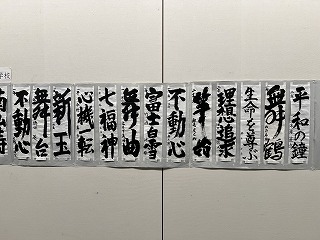 平和の鐘
舞鶴
生命を尊ぶ
理想追求
不動心
富士白雪
舞曲
七福神
心機一転
新玉
舞台
不動心
学校